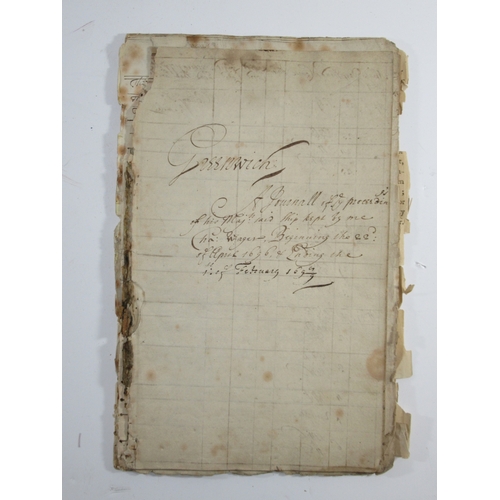 Greenwich
A Journall of ye proceedings
of his Maj: ship kept by me
Cha: Wager Beginning the 22:
of Aprill 1696 & Ending the
of February 169